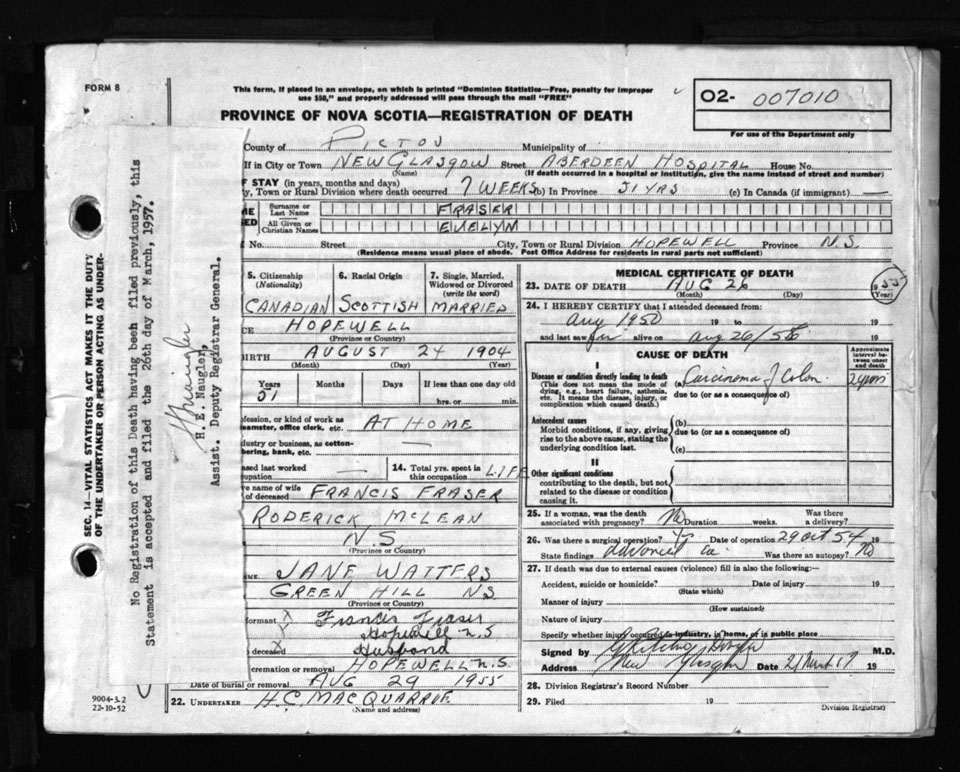 FORM 8
This form, if placed in an envelope, on which is printed "Dominion Statistics—Free, penalty for improper
use $50," and properly addressed will pass through the mail "FREE"
PROVINCE OF NOVA SCOTIA—REGISTRATION OF DEATH
O2- 007010
For use of the Department only
County of PICTOU Municipality of
If in City or Town NEW GLASGOW Street ABERDEEN HOSPITAL House No.
(Name) (If death occurred in a hospital or institution, give the name instead of street and number)
OF STAY (in years, months and days)
y, Town or Rural Division where death occurred 7 WEEKS (b) In Province 51 YRS (c) In Canada (if immigrant) —
Surname or
Last Name FRASER
All Given or
Christian Names EVELYM
No. Street City, Town or Rural Division HOPEWELL Province N.S.
(Residence means usual place of abode. Post Office Address for residents in rural parts not sufficient)
5. Citizenship
(Nationality)
CANADIAN
6. Racial Origin
SCOTTISH
7. Single, Married,
Widowed or Divorced
(write the word)
MARRIED
CE HOPEWELL
(Province or Country)
BIRTH AUGUST 24 1904
(Month) (Day) (Year)
Years Months Days If less than one day old
51 hrs. or min.
ofession, or kind of work as
eamster, office clerk, etc. AT HOME
dustry or business, as cotton-
bering, bank, etc. —
ased last worked
upation —
14. Total yrs. spent in
this occupation LIFE
ve name of wife
of deceased FRANCIS FRASER
RODERICK MCLEAN
N.S
(Province or Country)
AME JANE WATTERS
GREEN HILL NS
(Province or Country)
formant Francis Fraser
Hopewell N.S
deceased Husband
cremation or removal HOPEWELL N.S.
Date of burial or removal AUG 29 1955
22. UNDERTAKER H.C. MACQUARROE
(Name and address)
MEDICAL CERTIFICATE OF DEATH
23. DATE OF DEATH AUG 26 1955
(Month) (Day) (Year)
24. I HEREBY CERTIFY that I attended deceased from:
Aug 1950 19 to 19
and last saw alive on Aug 26/55 19
CAUSE OF DEATH
Approximate
interval be-
tween onset
and death
I
Disease or condition directly leading to death
(This does not mean the mode of
dying, e.g., heart failure, asthenia,
etc. It means the disease, injury, or
complication which caused death.)
(a) Carcinoma of Colon
due to (or as a consequence of)
Antecedent causes
Morbid conditions, if any, giving
rise to the above cause, stating the
underlying condition last.
(b)
due to (or as a consequence of)
(c)
II
Other significant conditions
contributing to the death, but not
related to the disease or condition
causing it.
25. If a woman, was the death
associated with pregnancy? No Duration weeks. Was there
a delivery?
26. Was there a surgical operation? Yes Date of operation 29 Oct 54 19
State findings advanced ca. Was there an autopsy? No
27. If death was due to external causes (violence) fill in also the following:—
Accident, suicide or homicide? Date of injury 19
(State which)
Manner of injury
(How sustained)
Nature of injury
Specify whether injury occurred in industry, in home, or in public place
Signed by M.D.
Address New Glasgow Date 19
28. Division Registrar's Record Number
29. Filed 19
Division Registrar)
SEC. 14—VITAL STATISTICS ACT MAKES IT THE DUTY
OF THE UNDERTAKER OR PERSON ACTING AS UNDER-
No Registration of this Death having been filed previously, this
Statement is accepted and filed the 26th day of March, 1957.
H. E. Naugler,
Assist. Deputy Registrar General.
9004-3.2
22-10-52